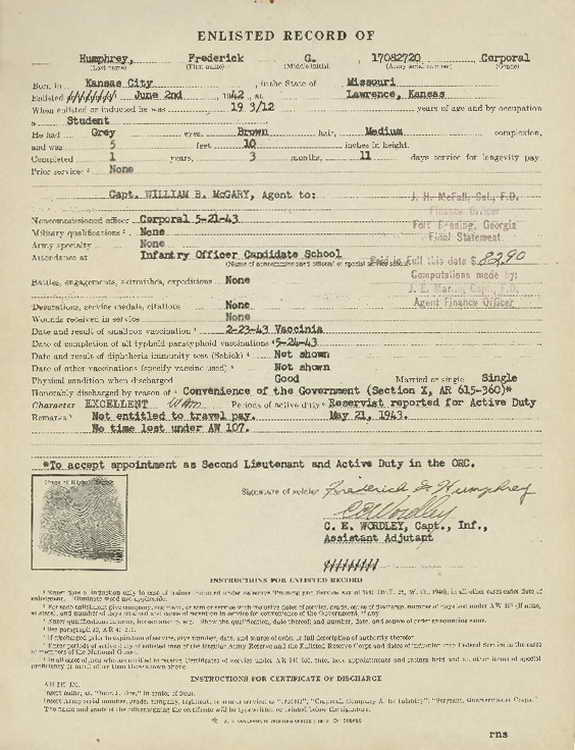 ENLISTED RECORD OF
Humphrey, Frederick G. 17082720 Corporal
(Last name) (First name) (Middle initial) (Army serial number) (Grade)
Born in Kansas City, in the State of Missouri
Enlisted June 2nd, 1942, at Lawrence, Kansas
When enlisted or inducted he was 19 3/12 years of age and by occupation
a Student
He had Grey eyes, Brown hair, Medium complexion,
and was 5 feet 10 inches in height.
Completed 1 years, 3 months, 11 days service for longevity pay.
Prior service: None
Capt. WILLIAM B. McGARY, Agent to: J. H. McFall, Col., F.D.
Finance Officer
Noncommissioned officer Corporal 5-21-43 Fort Benning, Georgia
Military qualifications None Final Statement
Army specialty None
Attendance at Infantry Officer Candidate School Paid in full this date $ 82.90
(Name of noncommissioned officers' or special service school)
Computations made by:
Battles, engagements, skirmishes, expeditions None
Agent Finance Officer
Decorations, service medals, citations None
Wounds received in service None
Date and result of smallpox vaccination 2-23-43 Vaccinia
Date of completion of all typhoid-paratyphoid vaccinations 5-24-43
Date and result of diphtheria immunity test (Schick) Not shown
Date of other vaccinations (specify vaccine used) Not shown
Physical condition when discharged Good Married or single Single
Honorably discharged by reason of Convenience of the Government (Section X, AR 615-360)*
Character EXCELLENT Periods of active duty Reservist reported for Active Duty
Remarks Not entitled to travel pay. May 21, 1943.
No time lost under AW 107.
*To accept appointment as Second Lieutenant and Active Duty in the ORC.
Signature of soldier Frederick G. Humphrey
C E Wordley
C. E. WORDLEY, Capt., Inf.,
Assistant Adjutant
INSTRUCTIONS FOR ENLISTED RECORD
INSTRUCTIONS FOR CERTIFICATE OF DISCHARGE
AR 345-470.
Insert name, as "John J. Doe," in center of form.
The name and grade of the officer signing the certificate will be typewritten or printed below the signature.
rns